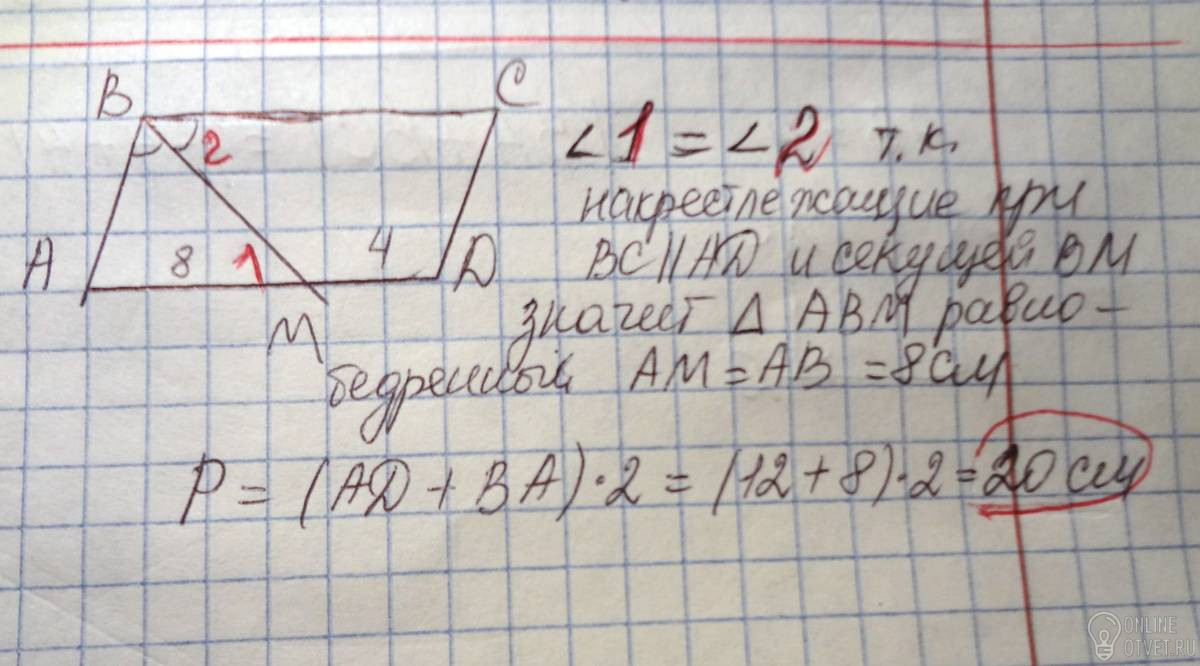 B
C
2
A
8
1
4
D
M
<1 = <2 т.к.
накрестлежащие при
BC||AD и секущей BM
значит Δ ABM равно-
бедренный AM = AB = 8см
P = (AD + BA)·2 = (12 + 8)·2 = 20 см
ONLINE
OTVET.RU